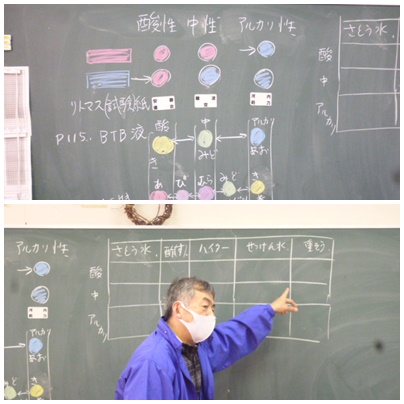 酸性 中性 アルカリ性
リトマス(試験)紙
P115. BTB液
酸 中 アルカリ
き みど あお
あ ぴ むら みど き
さとう水
酸
中
アルカリ
アルカリ性
アルカリ
あお
き
さとう水 酢(す) ハイター せっけん水 重そう
酸
中
アルカリ